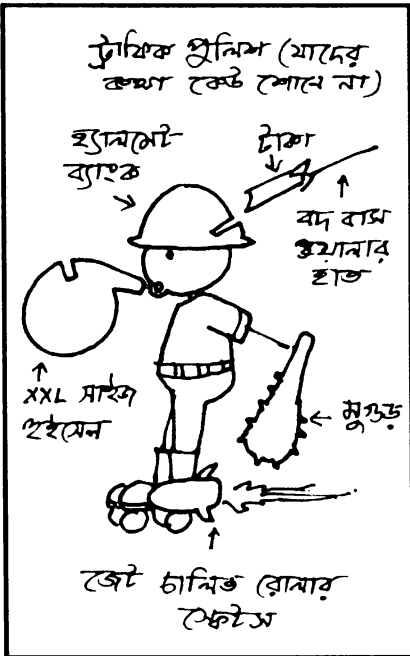 ট্রাফিক পুলিশ (যাদের
কথা কেউ শোনে না)
হ্যালমেট
ব্যাংক
টাকা
বদ বাস
ওয়ালার
হাত
XXL সাইজ
হুইসেল
মুগুড়
জেট চালিত রোলার
স্কেটস